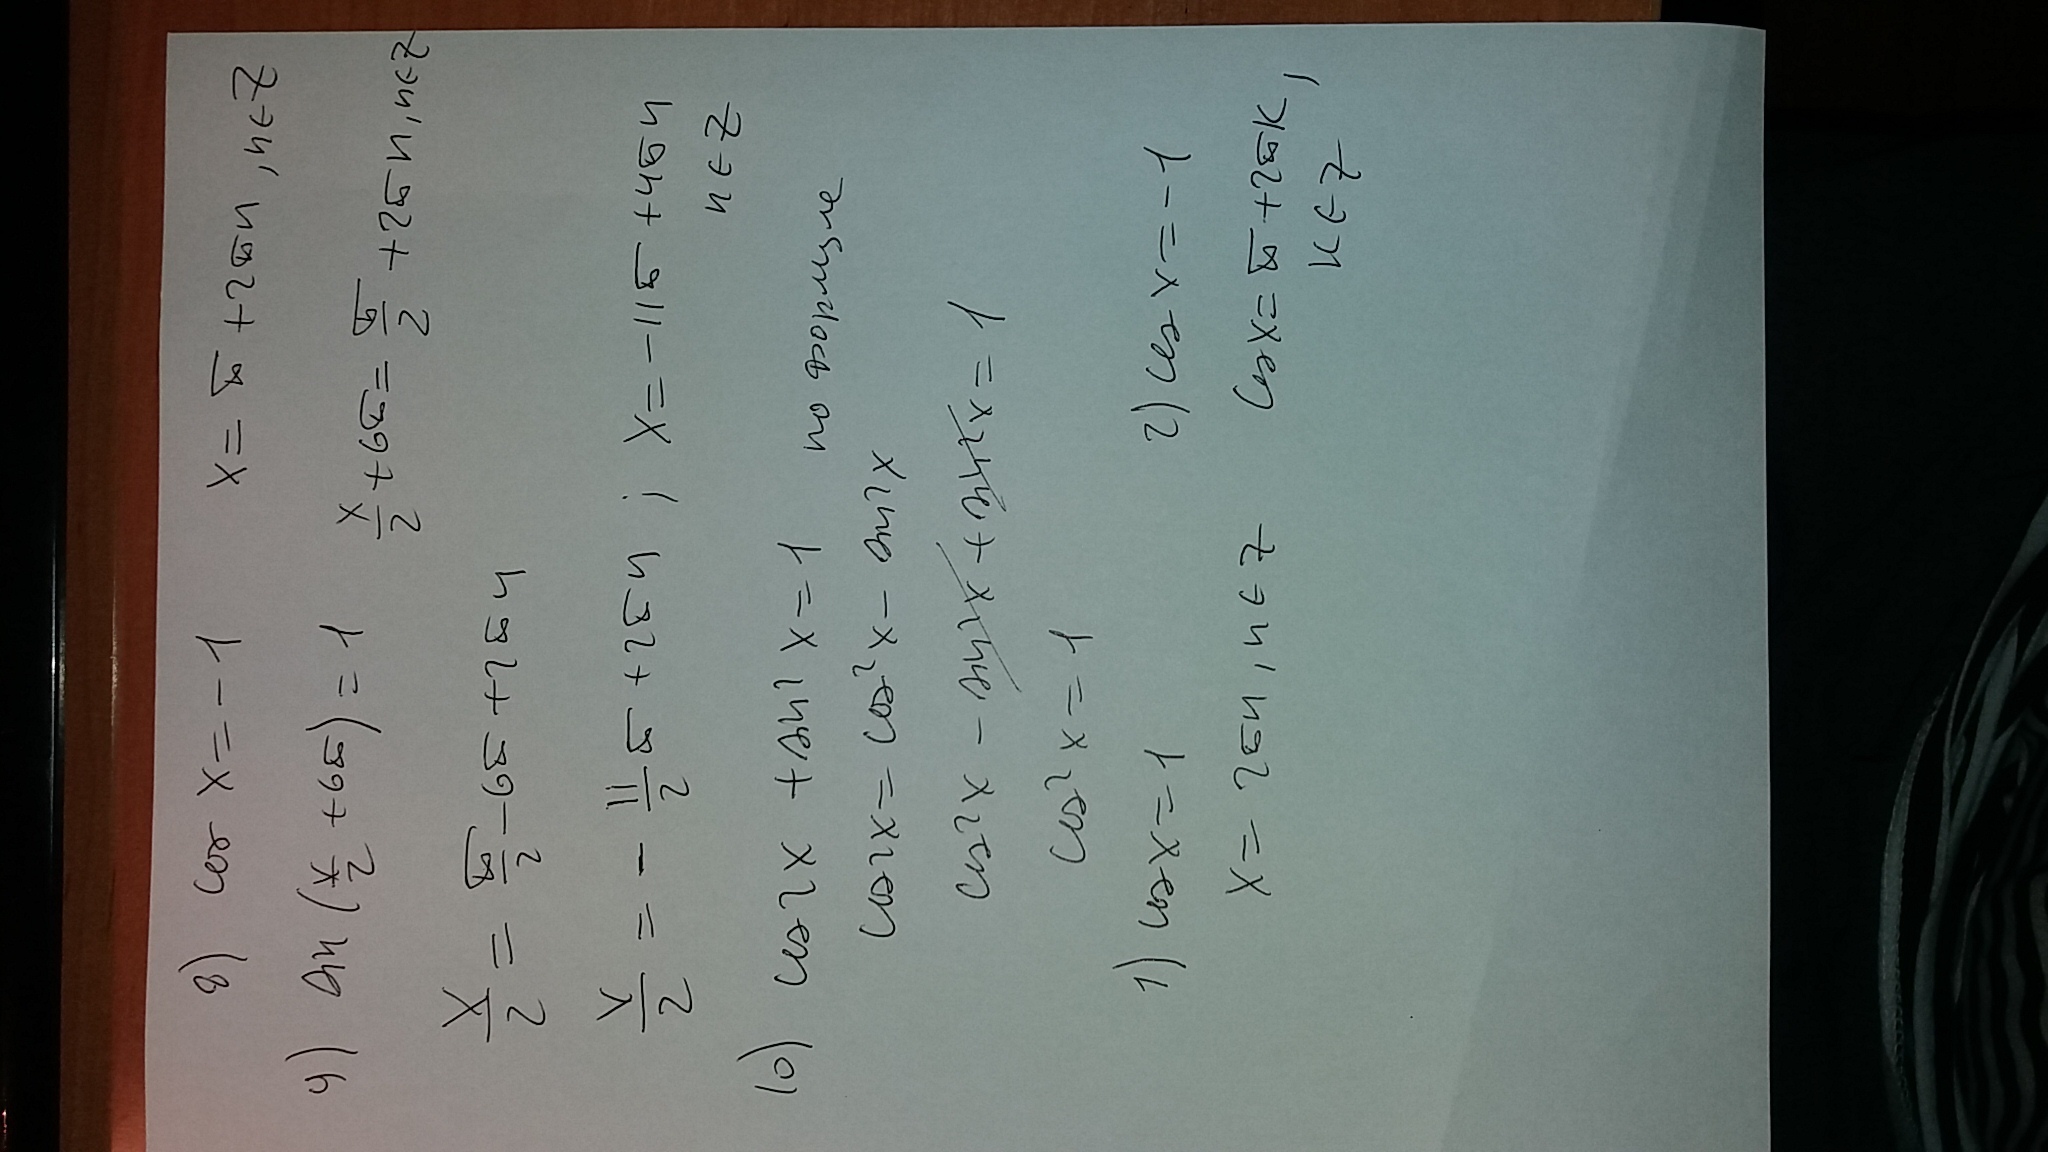 8) cos x = -1 x = π + 2πn, n∈Z
9) sin(x/2 + 6π) = 1 x/2 + 6π = π/2 + 2πn, n∈Z
x/2 = π/2 - 6π + 2πn
x/2 = - 11/2 π + 2πn ; x = -11π + 4πn
n∈Z
10) cos2x + sin²x = 1 по формуле
cos2x = cos²x - sin²x
cos²x - sin²x + sin²x = 1
cos²x = 1
1) cosx = 1 2) cosx = -1
x = 2πn, n∈Z cosx = π + 2πk,
k∈Z